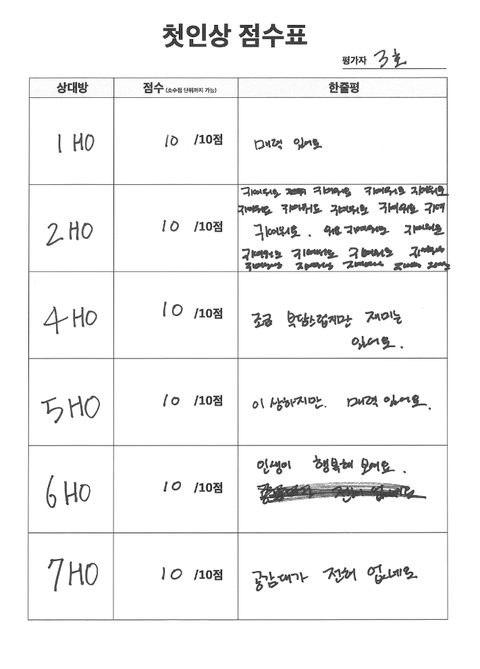 첫인상 점수표
평가자 3호
상대방 점수 (소수점 단위까지 가능) 한줄평
1 HO 10 /10점 매력 있어요
2 HO 10 /10점
귀여워요 귀여워요 귀여워요 귀여워요
귀여워요 귀여워요 귀여워요 귀여워요 귀여
귀여워요. 귀여워요 귀여워요
귀여워요 귀여워요 귀여워요 귀여워요
귀여워요 귀여워요 귀여워요
4 HO 10 /10점 조금 부담스럽지만 재미는
있어요.
5 HO 10 /10점 이상하지만. 매력 있어요.
6 HO 10 /10점 인생이 행복해 보여요.
7 HO 10 /10점 공감대가 전혀 없네요